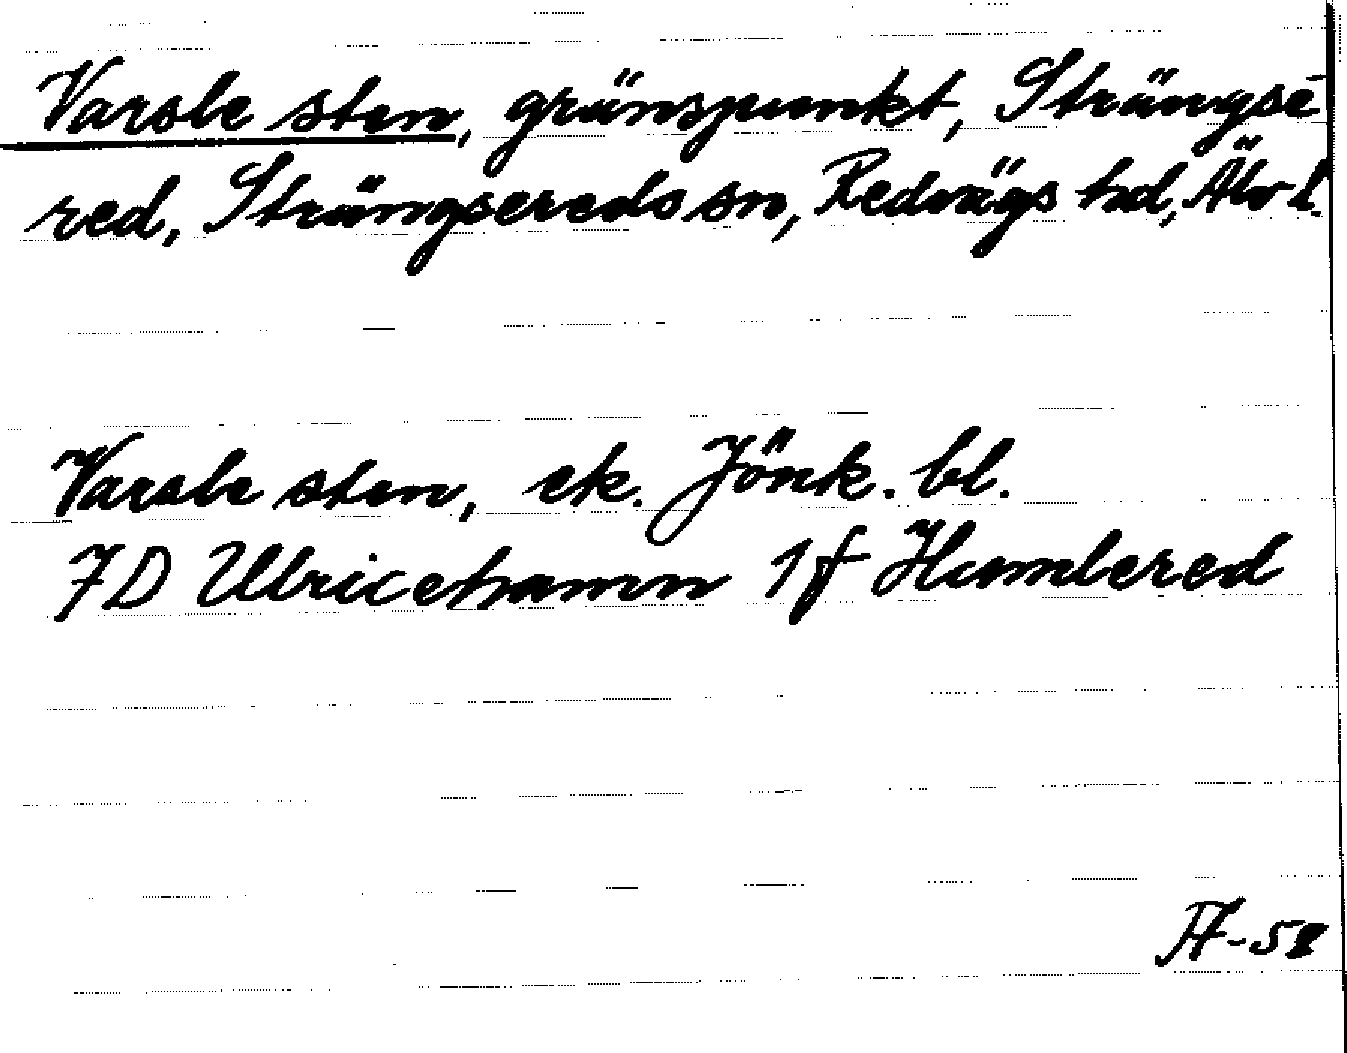 Varsle sten, gränspunkt, Strängse-
red, Strängsereds sn, Redvägs hd, Älv l.
Varsle sten, ek. Jönk. bl.
7D Ulricehamn 1f Humlered